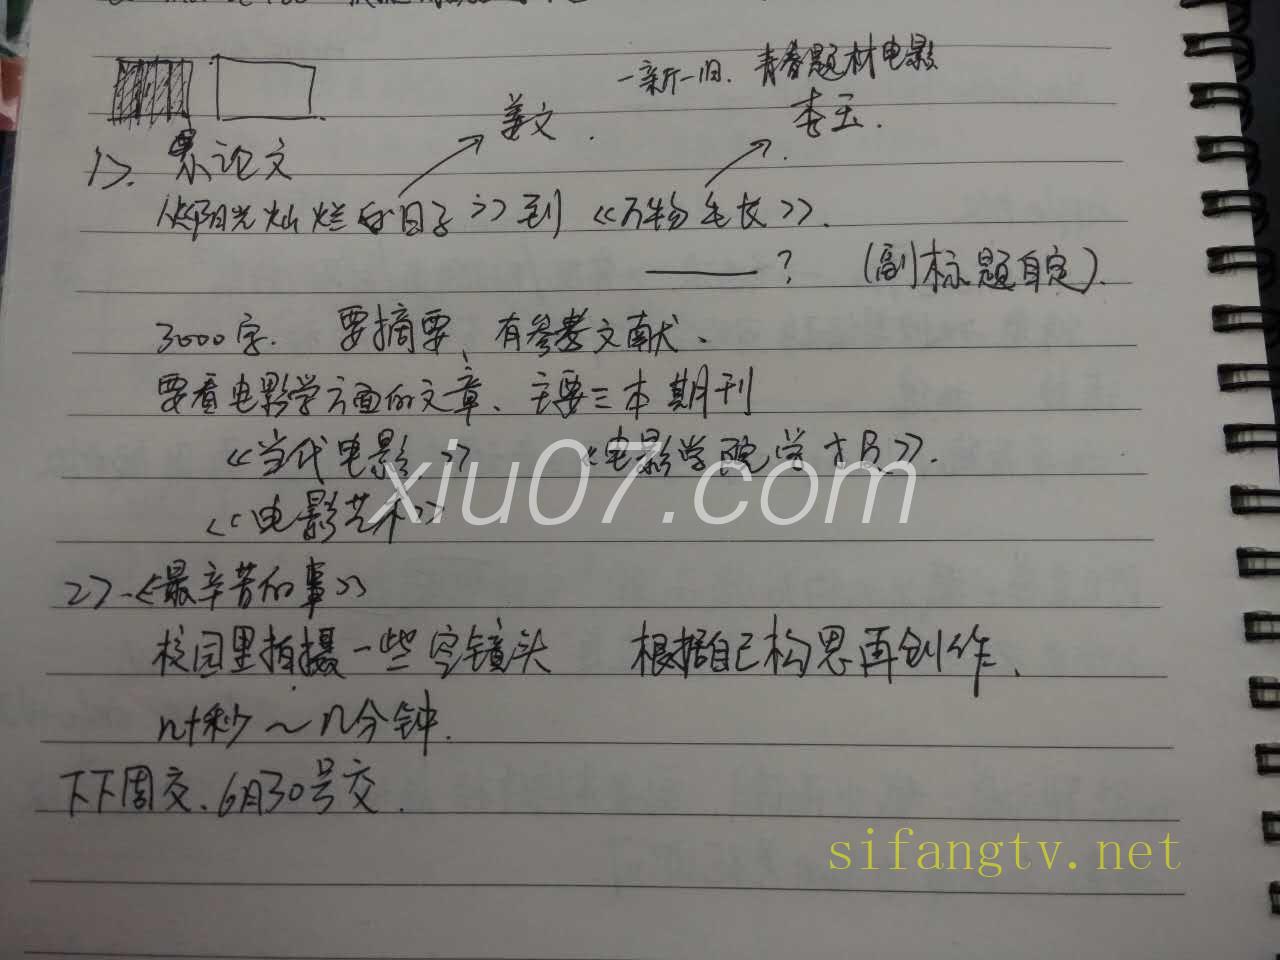 一新一旧. 青春题材电影
姜文. 李玉.
1>. 论文
《阳光灿烂的日子》到《万物生长》.
——? (副标题自定).
3000字. 要摘要、有参考文献、
要看电影学方面的文章、主要三本期刊
《当代电影》 《电影学院学报》.
《电影艺术》
xiu07.com
2>.《最辛苦的事》
校园里拍摄一些空镜头 根据自己构思再创作、
n十秒～n分钟.
下下周交、6月30号交.
sifangtv.net